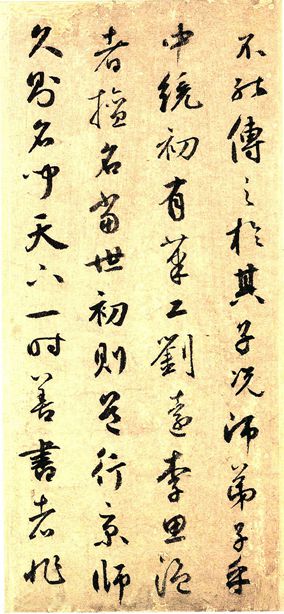 不能傳之於其子況師弟子乎
中統初有筆工劉遠李思
者擅名當世初則行京師
久則名聞天下一時善書者非